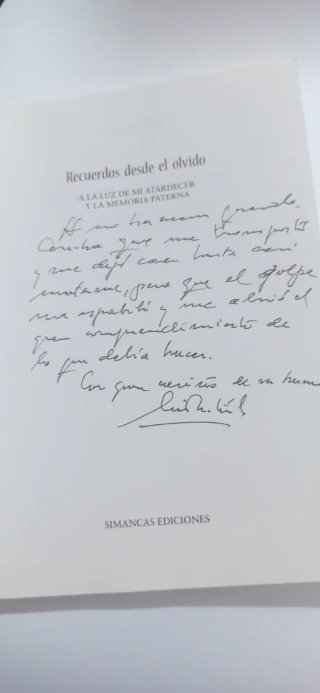 Recuerdos desde el olvido
A LA LUZ DE MI ATARDECER
Y LA MEMORIA PATERNA
A mi hermana querida
Concha que me transportó
y me dejó caer hasta casi
matarme, pero que el golpe
me espabiló y me abrió el
gran comprendimiento de
lo que debía hacer.
Con gran cariño de su
SIMANCAS EDICIONES